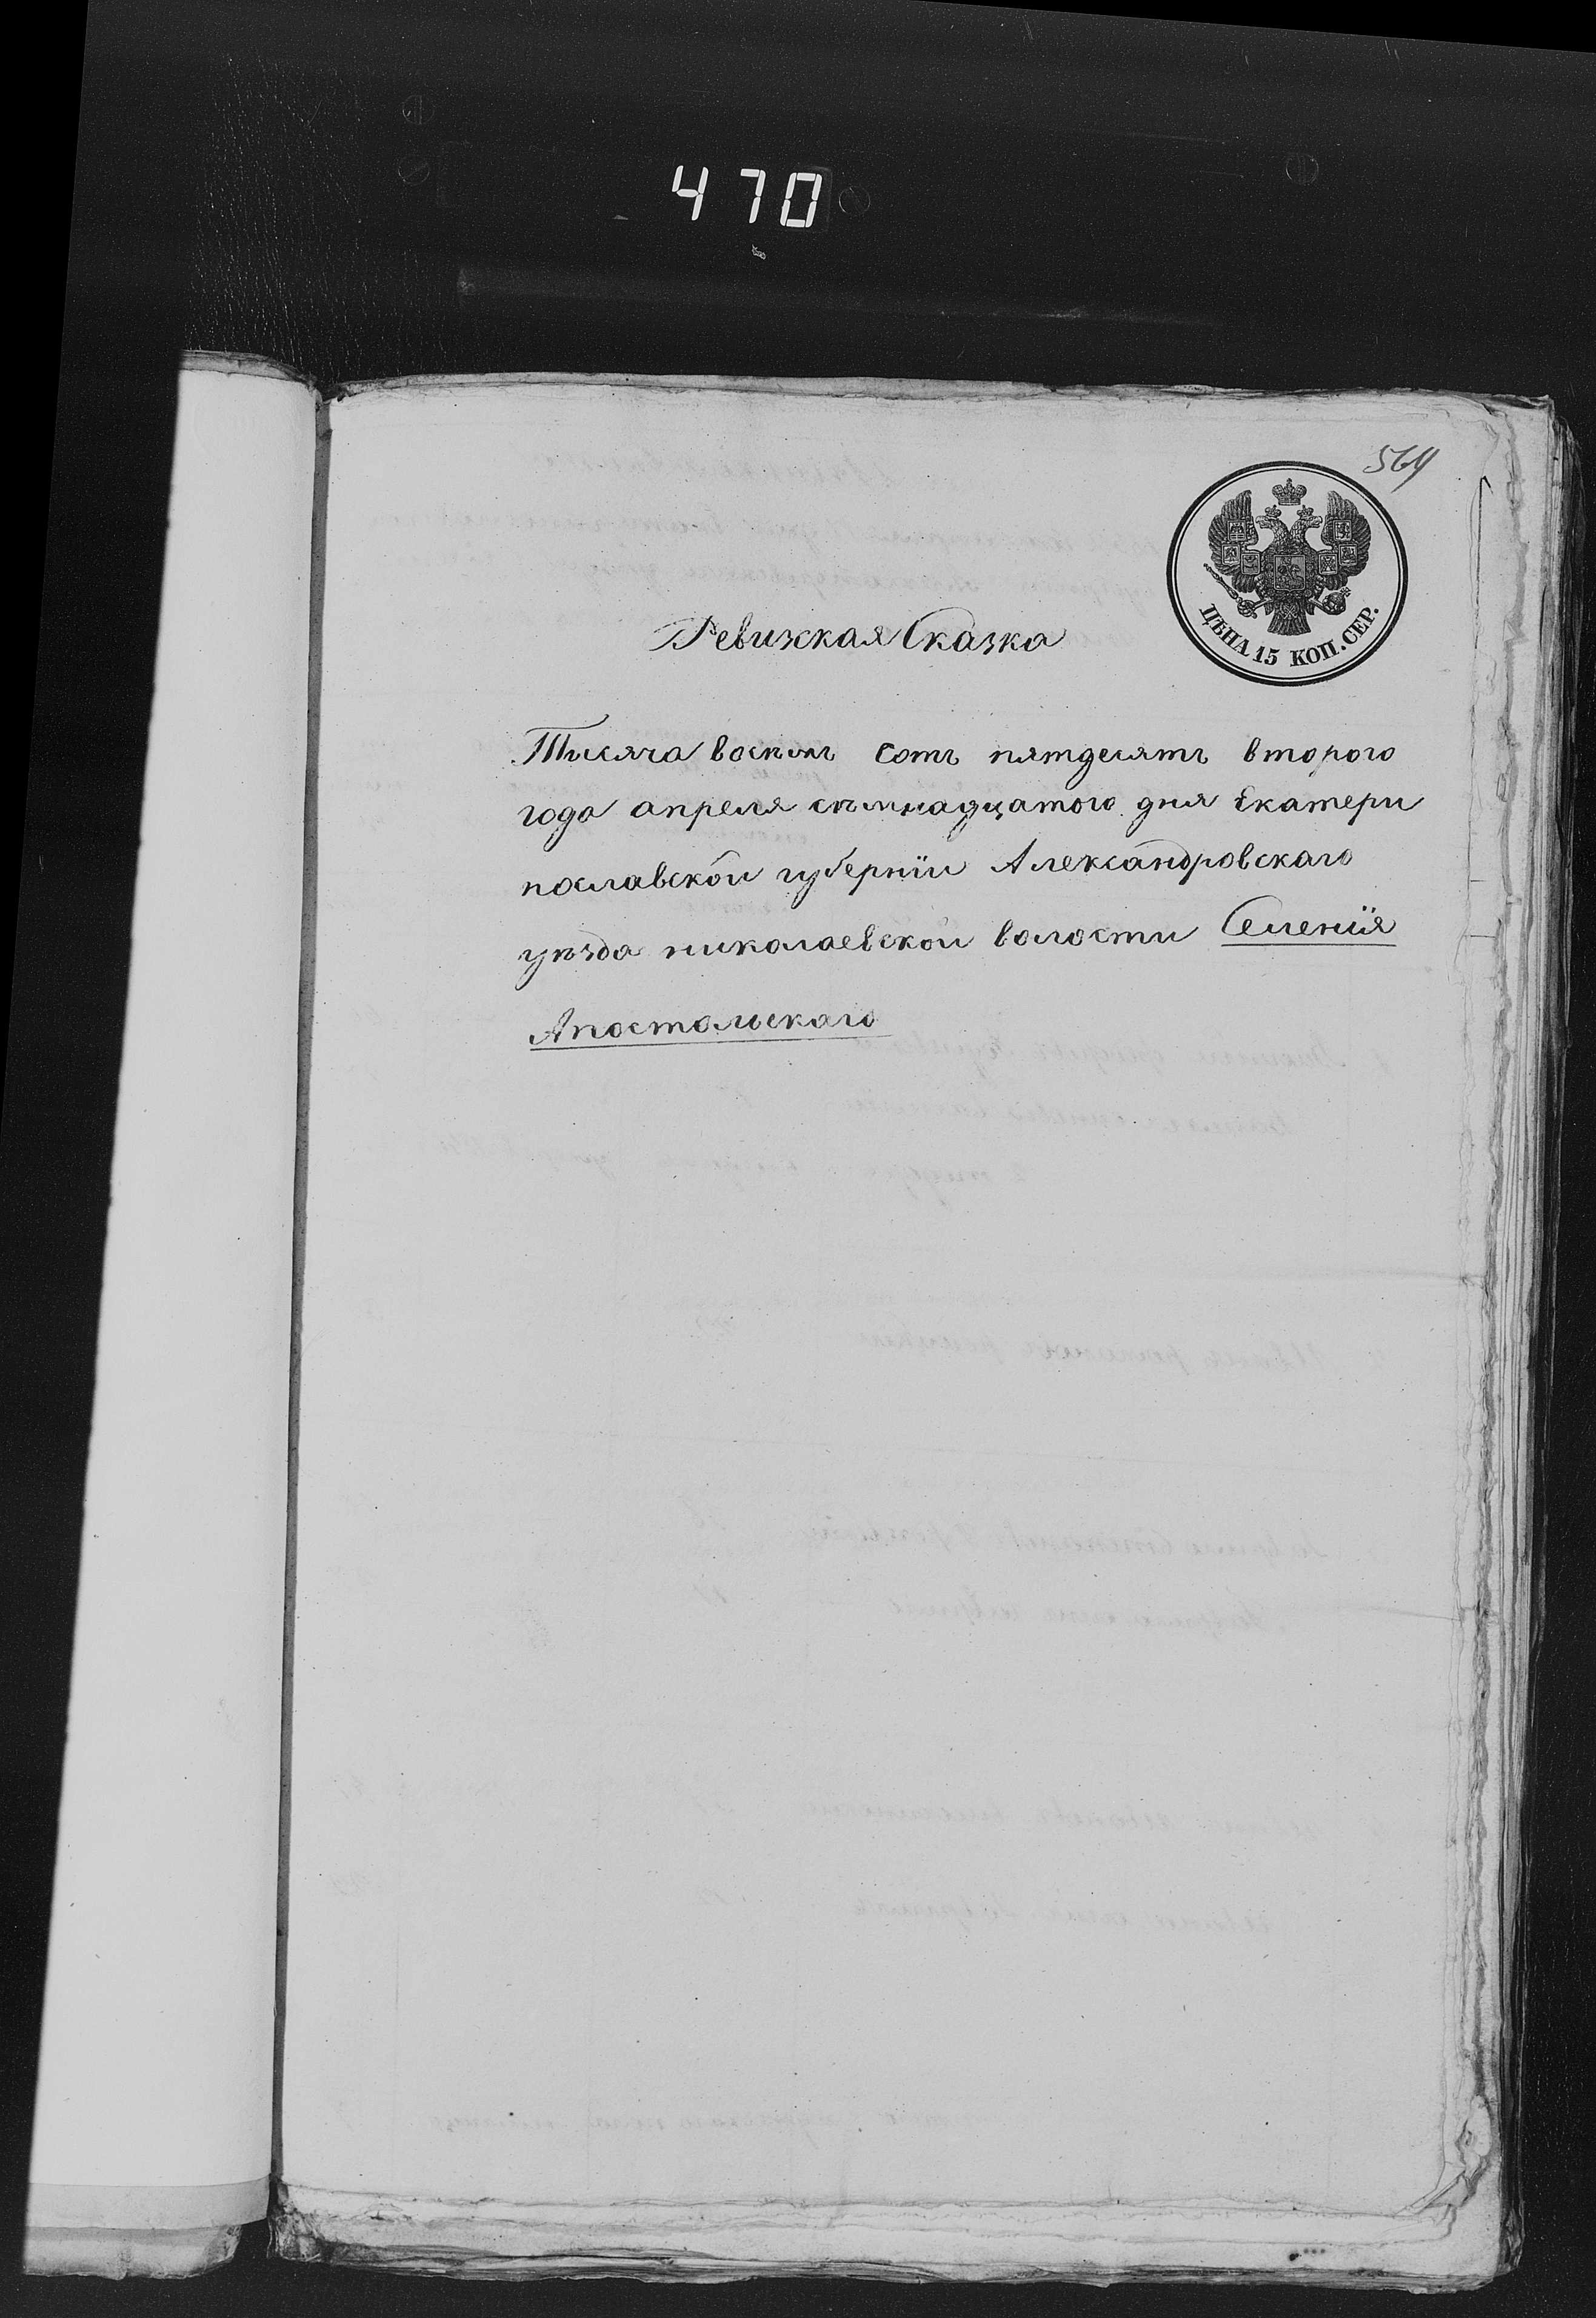 470
564
ЦѢНА 15 КОП. СЕР.
Ревизская Сказка
Тысяча восемь сотъ пятдесятъ второго
года апреля съмнадцатого дня Екатери
нославской губернїи Александровскаго
уѣзда николаевской волости Селенїя
Апостольскаго